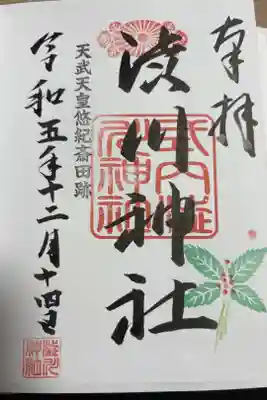 奉拝
渋川神社
天武天皇悠紀斎田跡
令和五年十二月十四日